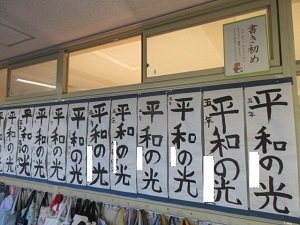 書き初め
平和の光
平和の光
平和の光
平和の光
平和の光
平和の光
平和の光
平和の光
平和の光
五年
平和の光
五年
平和の光